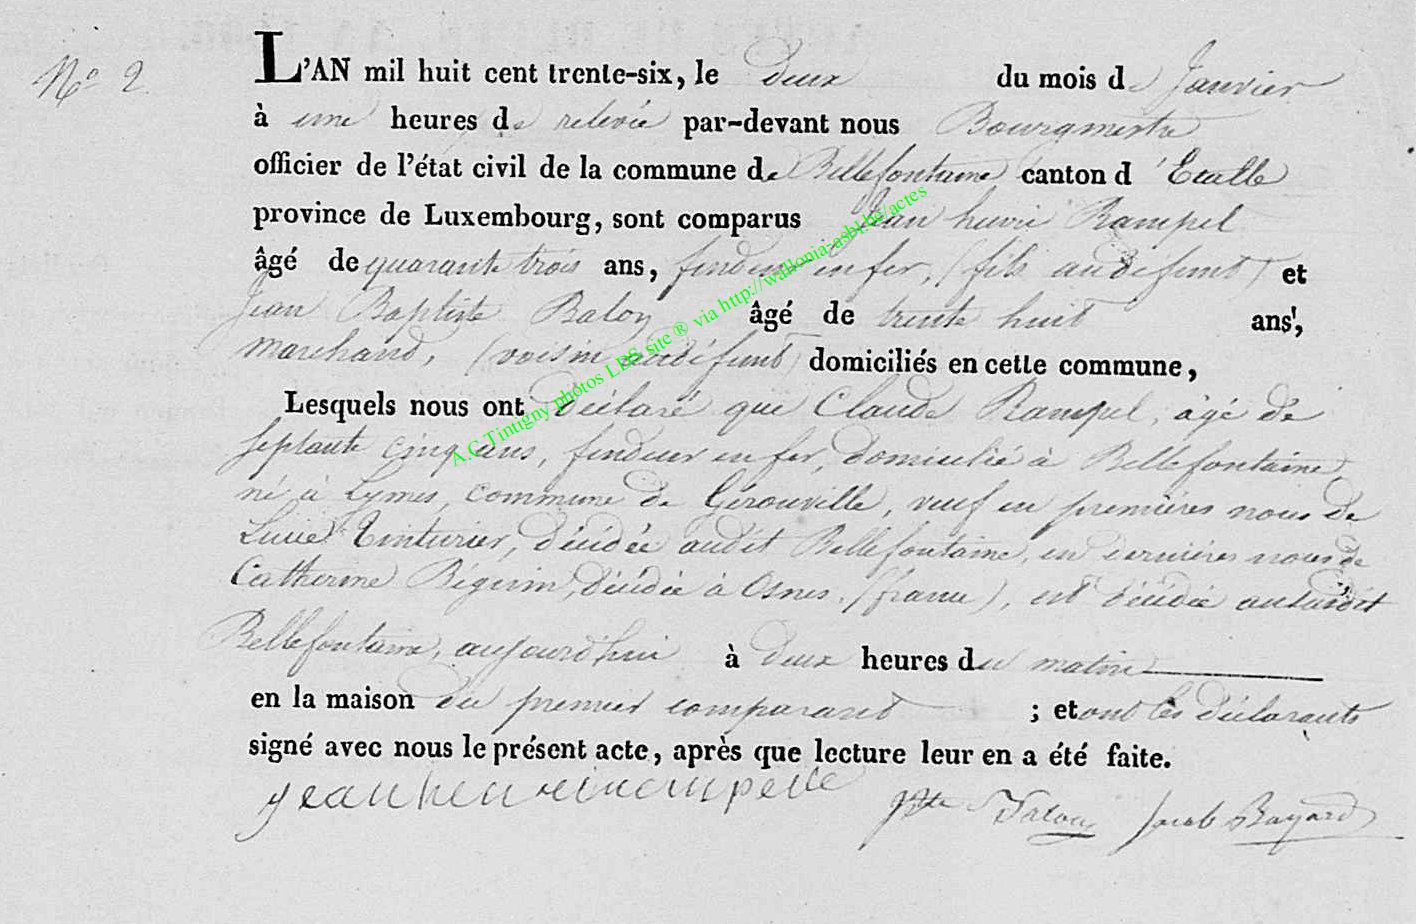 N° 2.
L'AN mil huit cent trente-six, le deux du mois de Janvier
à une heures de relevée par-devant nous Bourgmestre
officier de l'état civil de la commune de Bellefontaine canton d'Etalle
province de Luxembourg, sont comparus Jean henri Rampel
âgé de quarante trois ans, fendeur en fer, (fils au défunt) et
Jean Baptiste Baloy âgé de trente huit ans,
marchand, (voisin au défunt) domiciliés en cette commune,
Lesquels nous ont déclaré que Claude Rampel, âgé de
septante cinq ans, fendeur en fer, domicilié à Bellefontaine,
né à Lymes, commune de Gérouville, veuf en premières noces de
Lucie Tinturier, décédée audit Bellefontaine, en dernières noces de
Catherine Béguin, décédée à Osnes, (france), est décédé audit
Bellefontaine, aujourd'hui à deux heures du matin
en la maison du premier comparant ; et ont les déclarants
signé avec nous le présent acte, après que lecture leur en a été faite.
jean henri Jacob Bayard
A.C Tintigny photos LDS site ® via http://wallonia-asbl.be/actes